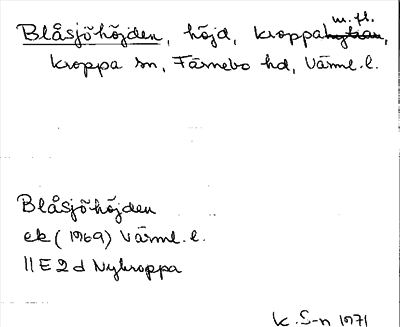 Blåsjöhöjden, höjd, kroppa m.fl.,
kroppa sn, Färnebo hd, Värml.l.
Blåsjöhöjden
ek (1969) Värml.l.
11E2d Nykroppa
K. S-n 1971